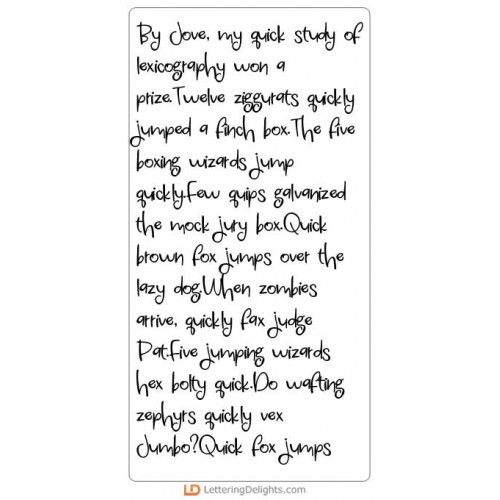 By Jove, my quick study of
lexicography won a
prize.Twelve ziggurats quickly
jumped a finch box.The five
boxing wizards jump
quickly.Few quips galvanized
the mock jury box.Quick
brown fox jumps over the
lazy dog.When zombies
arrive, quickly fax judge
Pat.Five jumping wizards
hex bolty quick.Do wafting
zephyrs quickly vex
Jumbo?Quick fox jumps
LD LetteringDelights.com